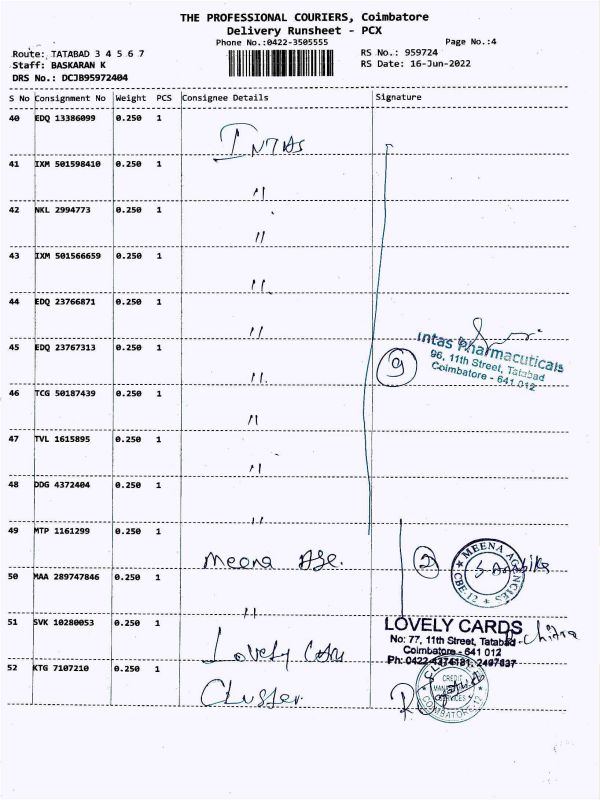 THE PROFESSIONAL COURIERS, Coimbatore
Delivery Runsheet - PCX
Phone No.:0422-3505555
Page No.:4
Route: TATABAD 3 4 5 6 7
RS No.: 959724
Staff: BASKARAN K
RS Date: 16-Jun-2022
DRS No.: DCJB95972404
S No Consignment No Weight PCS Consignee Details Signature
40 EDQ 13386099 0.250 1 INTAS
41 IXM 501598410 0.250 1 "
42 NKL 2994773 0.250 1 "
43 IXM 501566659 0.250 1 "
44 EDQ 23766871 0.250 1 "
45 EDQ 23767313 0.250 1 "
Intas Pharmacuticals
96, 11th Street, Tatabad
Coimbatore - 641 012
9
46 TCG 50187439 0.250 1 "
47 TVL 1615895 0.250 1 "
48 DDG 4372404 0.250 1 "
49 MTP 1161299 0.250 1 Meena Age.
2
MEENA AGENCIES
CBE-12
50 MAA 289747846 0.250 1 "
51 SVK 10280053 0.250 1 Lovely
LOVELY CARDS
No: 77, 11th Street, Tatabad
Coimbatore - 641 012
Ph: 0422-4374181, 2497637
52 KTG 7107210 0.250 1 Cluster
CREDIT
COIMBATORE-12